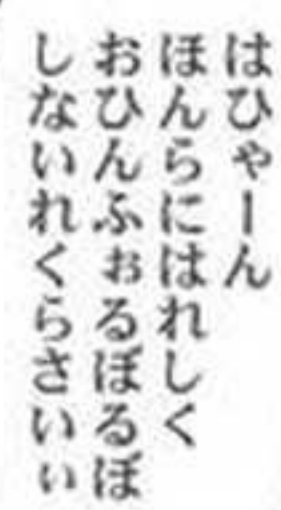 はひゃーん
ほんらにはれしく
おひんふぉるぼるぼ
しないれくらさいぃ